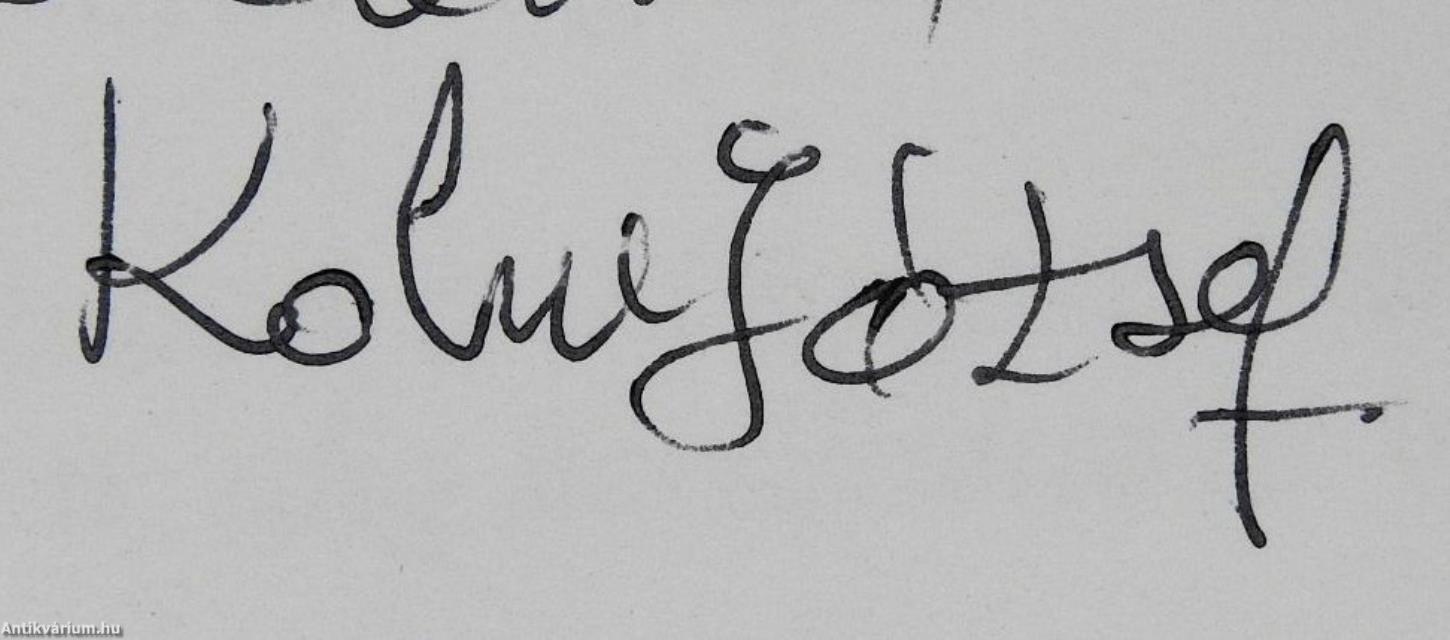 Kolne József
Antikvárium.hu